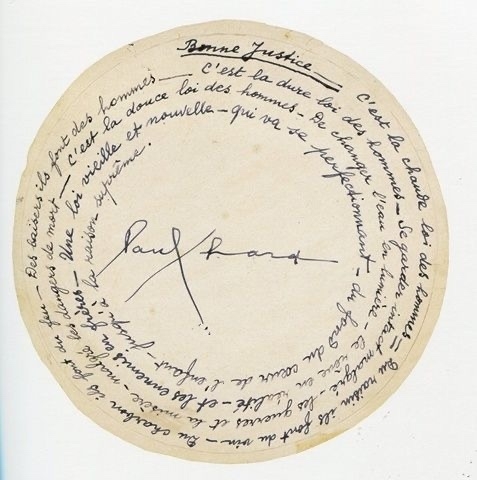 Bonne Justice
C'est la chaude loi des hommes – Du raisin ils font du vin – Du charbon ils font du feu – Des baisers ils font des hommes –
C'est la dure loi des hommes – Se garder intact malgré – les guerres et la misère – malgré les dangers de mort –
C'est la douce loi des hommes – De changer l'eau en lumière – le rêve en réalité – et les ennemis en frères –
Une loi vieille et nouvelle – qui va se perfectionnant – du fond du cœur de l'enfant – jusqu'à la raison suprême.
Paul Eluard